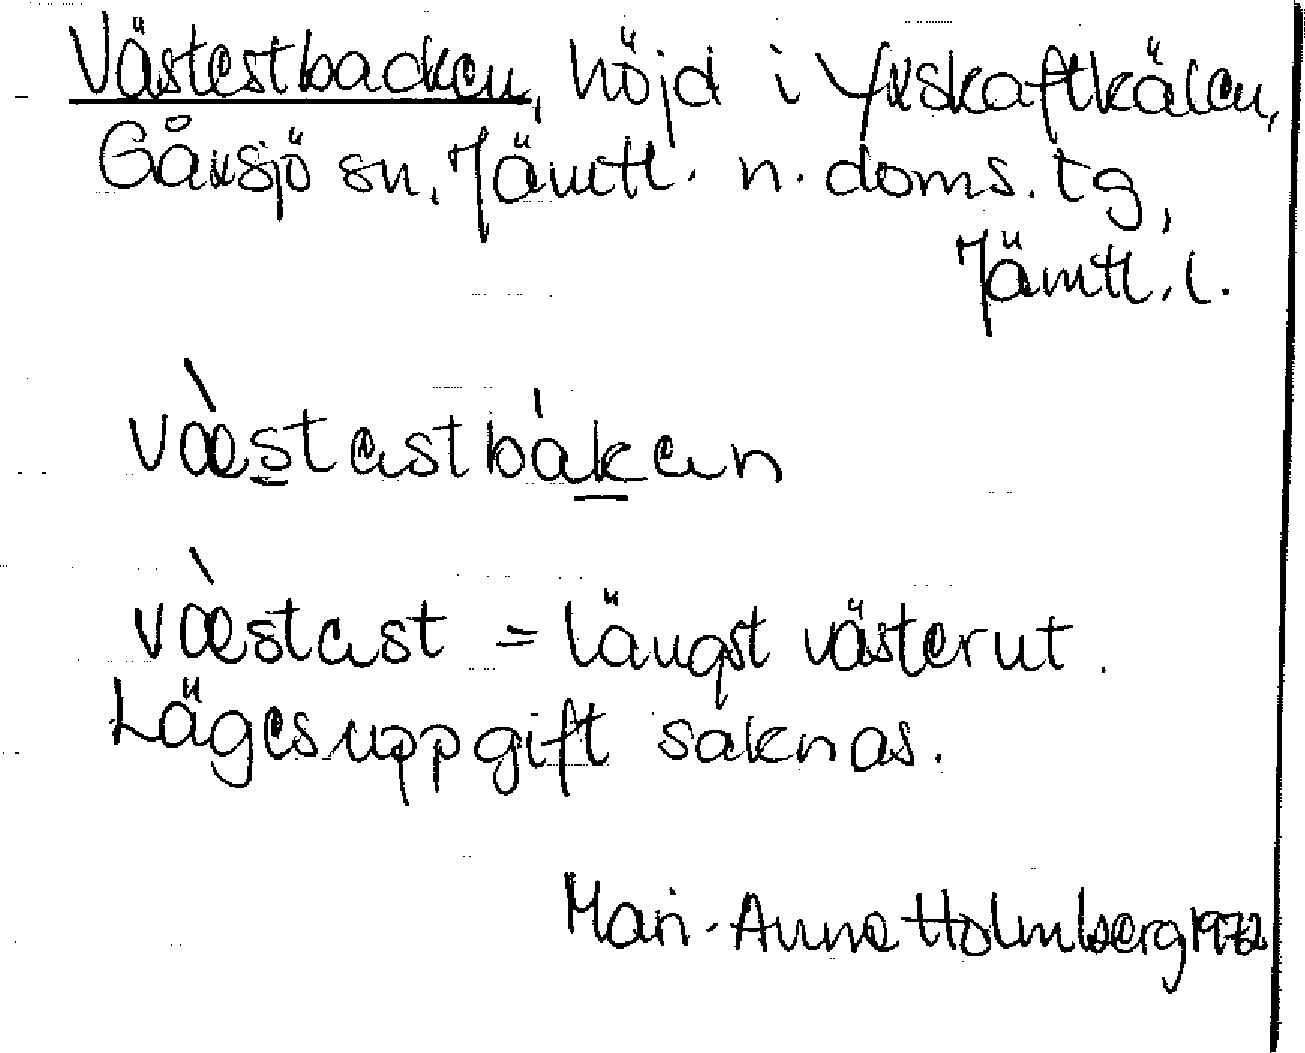 Västestbacken, höjd i Yxskaftkälen,
Gåxsjö sn, Jämtl. n. doms. tg,
Jämtl. l.
væ̀stestbáken
væ̀stest = längst västerut.
Lägesuppgift saknas.
Mari-Anne Holmberg 1972